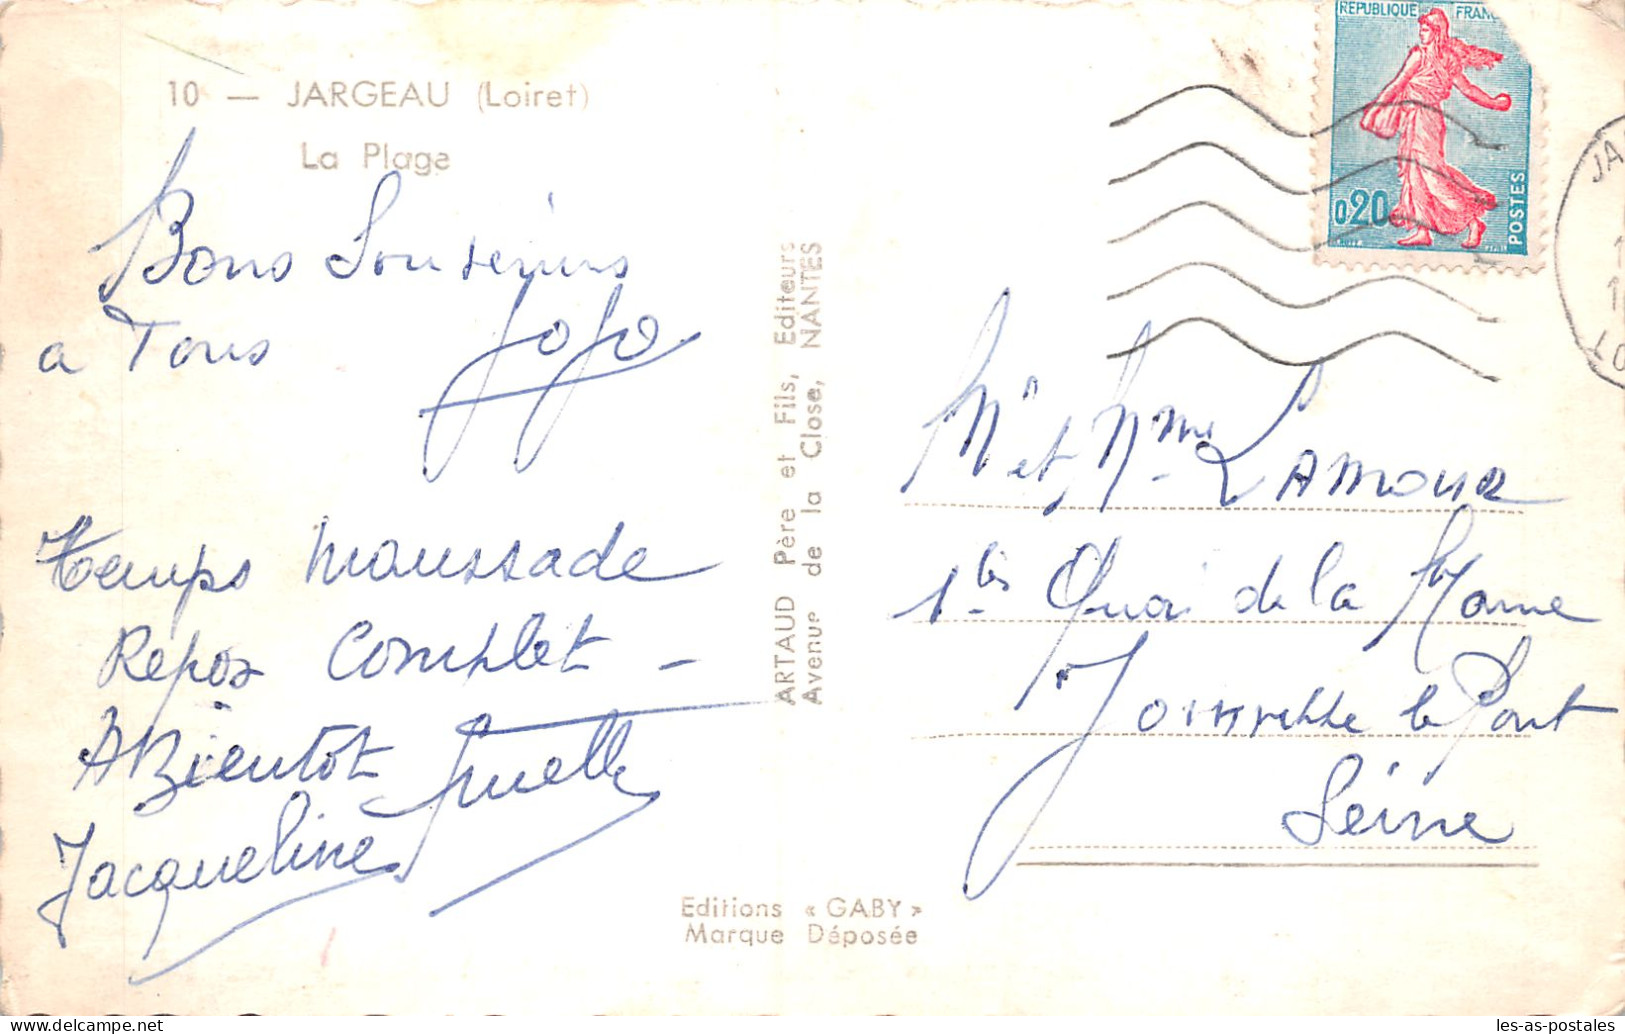 10 — JARGEAU (Loiret)
La Plage
Bons Souvenirs
a Tous Jojo
Temps maussade
Repos Complet —
A Bientot
Jacqueline
ARTAUD Père et Fils, Editeurs
Avenue de la Close, NANTES
Editions « GABY »
Marque Déposée
REPUBLIQUE FRANC
0,20
POSTES
JA
LO
Mr et Mme LAMOUR
1 bis Quai de la Marne
Joinville le Pont
Seine
les-as-postales - delcampe.net